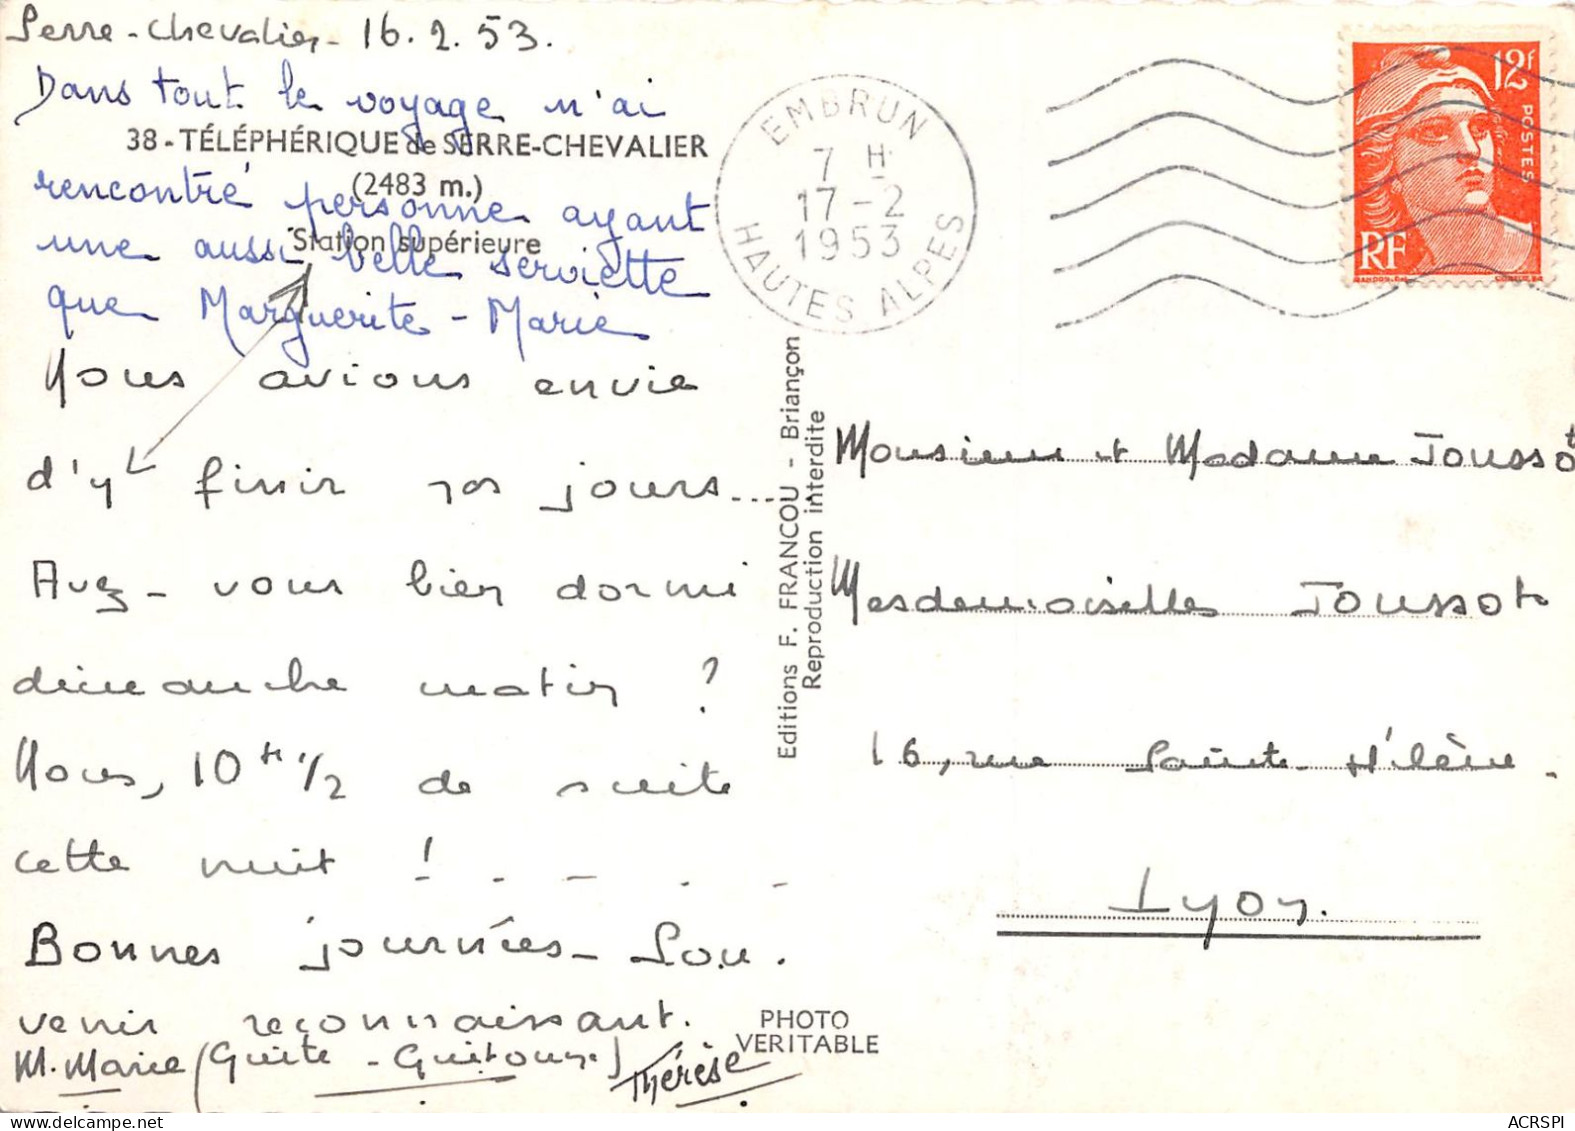 Serre-Chevalier - 16.2.53.
Dans tout le voyage n'ai
38 - TÉLÉPHÉRIQUE de SERRE-CHEVALIER
(2483 m.)
rencontré personne ayant
Station supérieure
une aussi belle serviette
que Marguerite-Marie
Nous avions envie
d'y finir nos jours....
Avez-vous bien dormi
dimanche matin ?
Nous, 10 H 1/2 de suite
cette nuit ! . - . -
Bonnes journées - Sou.
venir reconnaissant.
M. Marie (Guite - Guitoune)
Thérèse
PHOTO
VERITABLE
Editions F. FRANCOU - Briançon
Reproduction interdite
EMBRUN
7 H
17-2
1953
HAUTES ALPES
12F
POSTES
RF
Monsieur et Madame Joussot
Mesdemoiselles Joussot
16, rue Sainte-Hélène.
Lyon.
ACRSPI